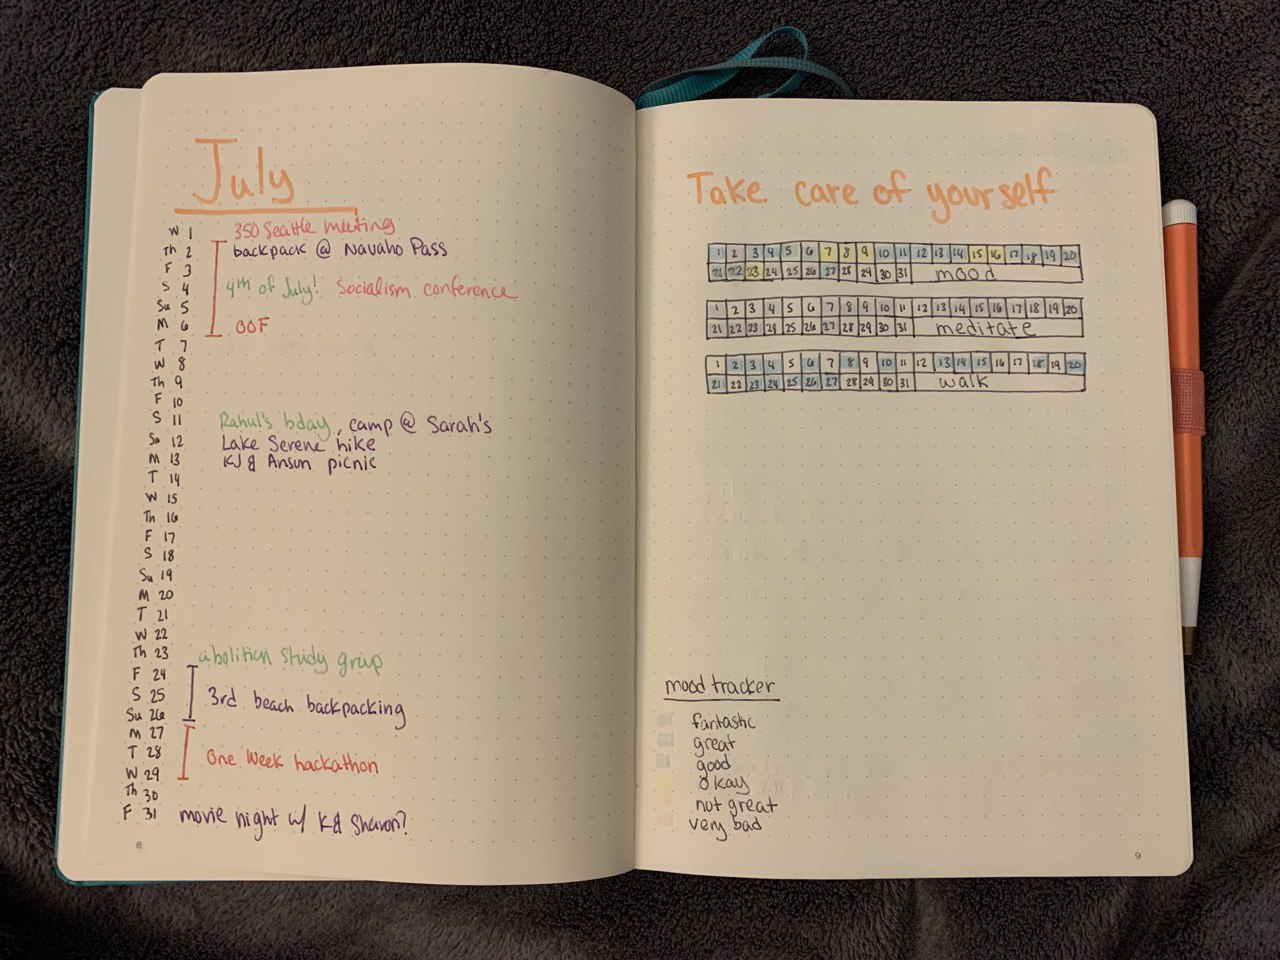 July
W 1 350 Seattle meeting
Th 2 backpack @ Navaho Pass
F 3
S 4 4th of July! Socialism conference
Su 5
M 6 OOF
T 7
W 8
Th 9
F 10
S 11 Rahul's bday, camp @ Sarah's
Su 12 Lake Serene hike
M 13 KJ & Ansun picnic
T 14
W 15
Th 16
F 17
S 18
Su 19
M 20
T 21
W 22
Th 23 abolition study group
F 24
S 25 3rd beach backpacking
Su 26
M 27
T 28 One Week hackathon
W 29
Th 30
F 31 movie night w/ K & Sharon?
8
Take care of yourself
1 2 3 4 5 6 7 8 9 10 11 12 13 14 15 16 17 18 19 20
21 22 23 24 25 26 27 28 29 30 31 mood
1 2 3 4 5 6 7 8 9 10 11 12 13 14 15 16 17 18 19 20
21 22 23 24 25 26 27 28 29 30 31 meditate
1 2 3 4 5 6 7 8 9 10 11 12 13 14 15 16 17 18 19 20
21 22 23 24 25 26 27 28 29 30 31 walk
mood tracker
fantastic
great
good
okay
not great
very bad
9